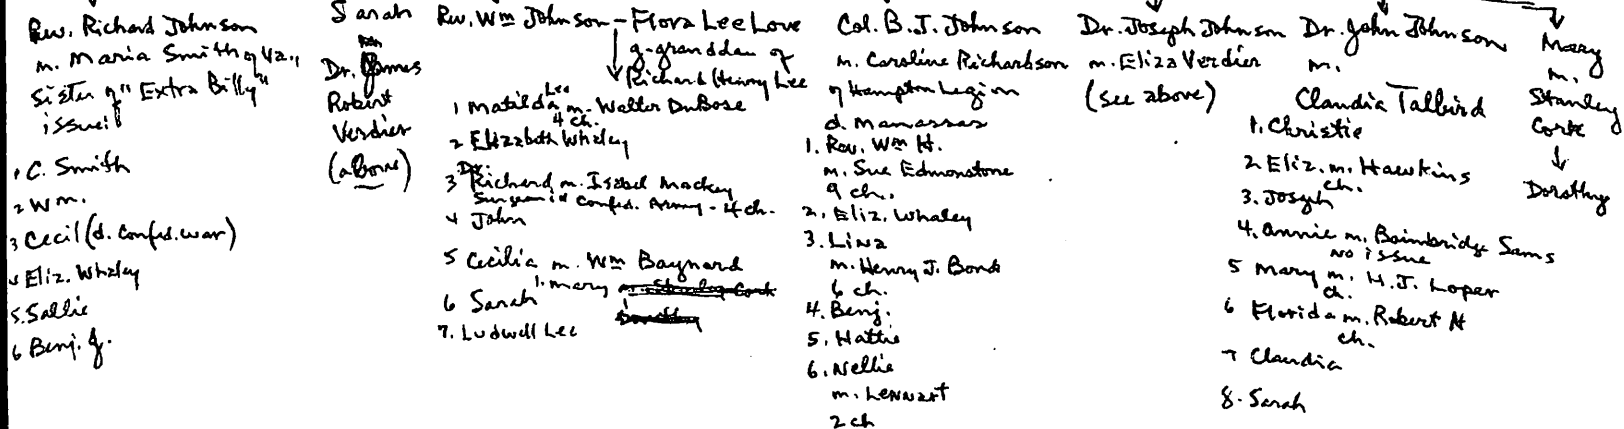 Rev. Richard Johnson
m. Maria Smith of Va.,
sister of "Extra Billy"
issue:
1 C. Smith
2 Wm.
3 Cecil (d. Confed. war)
4 Eliz. Whaley
5. Sallie
6 Benj. J.
Sarah
Dr. James
Robert
Verdier
(above)
Rev. Wm Johnson - Flora Lee Love
g-granddau of
Richard Henry Lee
1 Matilda Lee m. Walter DuBose
4 ch.
2 Elizabeth Whaley
3 Dr. Richard m. Isabel Mackey
Surgeon in Confed. Army - 4 ch.
4 John
5 Cecilia m. Wm Baynard
1. Mary m. Stanley Cork
Dorothy
6 Sarah
7. Ludwell Lee
Col. B.J. Johnson
m. Caroline Richardson
of Hampton Legion
d. Manassas
1. Rev. Wm H.
m. Sue Edmonstone
9 ch.
2. Eliz. Whaley
3. Lina
m. Henry J. Bond
6 ch.
4. Benj.
5. Hattie
6. Nellie
m. Lennart
2 ch
Dr. Joseph Johnson
m. Eliza Verdier
(see above)
Dr. John Johnson
m.
Claudia Talbird
1. Christie
2 Eliz. m. Hawkins
ch.
3. Joseph
4. Annie m. Bainbridge Sams
no issue
5 Mary m. H.J. Loper
ch.
6 Florida m. Robert H
ch.
7 Claudia
8. Sarah
Mary
m.
Stanley
Cork
Dorothy